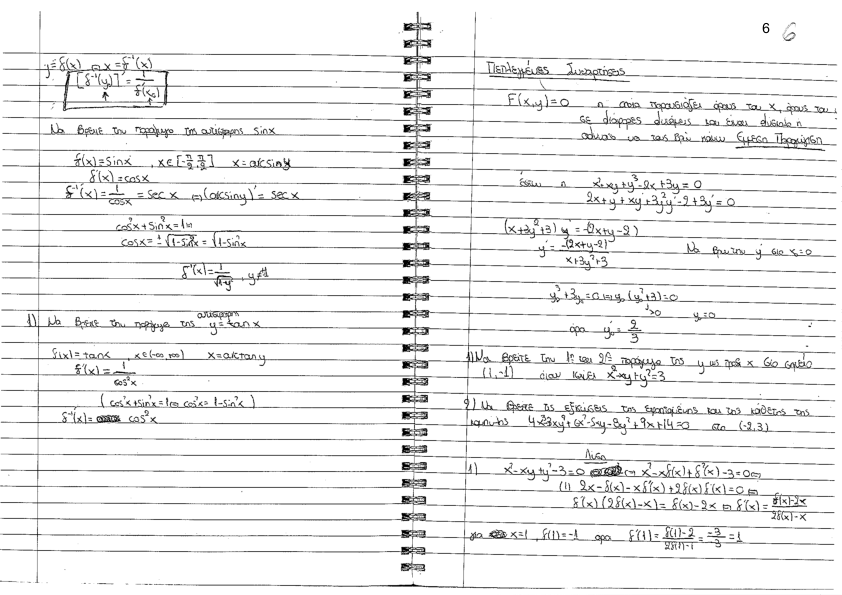 6 6
y=f(x) ⇔ x=f⁻¹(x)
[f⁻¹(y₀)]' = 1/f'(x₀)
Να βρείτε την παράγωγο της αντίστροφης sinx
f(x)=sinx , x∈[-π/2, π/2] x=arcsiny
f'(x)=cosx
f⁻¹'(x)=1/cosx = sec x ⇔ (arcsiny)' = sec x
cos²x+sin²x=1⇔
cosx=±√1-sin²x = √1-sin²x
f⁻¹'(x)=1/√1-y² , y≠±1
1) Να βρείτε την παράγωγο της αντίστροφη y=tan x
f(x)=tanx , x∈(-∞,+∞) x=arctany
f'(x)=1/cos²x
(cos²x+sin²x=1⇔ cos²x=1-sin²x)
f⁻¹'(x)= cos²x
Πεπλεγμένες Συναρτήσεις
F(x,y)=0 η οποία παρουσιάζει όρους του x, όρους του
σε διάφορες δυνάμεις και είναι δύσκολο ή
αδύνατο να τους βρω κάνω Έμμεση Παραγώγιση
έστω η x²+xy+y³-2x+3y=0
2x+y+xy'+3y²y'-2+3y'=0
(x+3y²+3) y'=-(2x+y-2)
y'=-(2x+y-2)/x+3y²+3 Να βρείτε την y' στο x₀=0
y₀³+3y₀=0⇔y₀(y₀²+3)=0
>0 y₀=0
άρα y'₀=2/3
1) Να βρείτε την 1η και 2η παράγωγο της y ως προς x στο σημείο
(1,-1) όταν ισχύει x²-xy+y²=3
2) Να βρείτε τις εξισώσεις της εφαπτομένης και της κάθετης της
καμπύλης 4x³-3xy²+6x²-5xy-8y²+9x+14=0 στο (-2,3)
Λύση
1) x²-xy+y²-3=0 ⇔ x²-xf(x)+f²(x)-3=0⇔
(1) 2x-f(x)-xf'(x)+2f(x)f'(x)=0 ⇔
f'(x)(2f(x)-x)=f(x)-2x ⇔ f'(x)=f(x)-2x/2f(x)-x
για x=1 , f(1)=-1 άρα f'(1)=f(1)-2/2f(1)-1=-3/-3=1